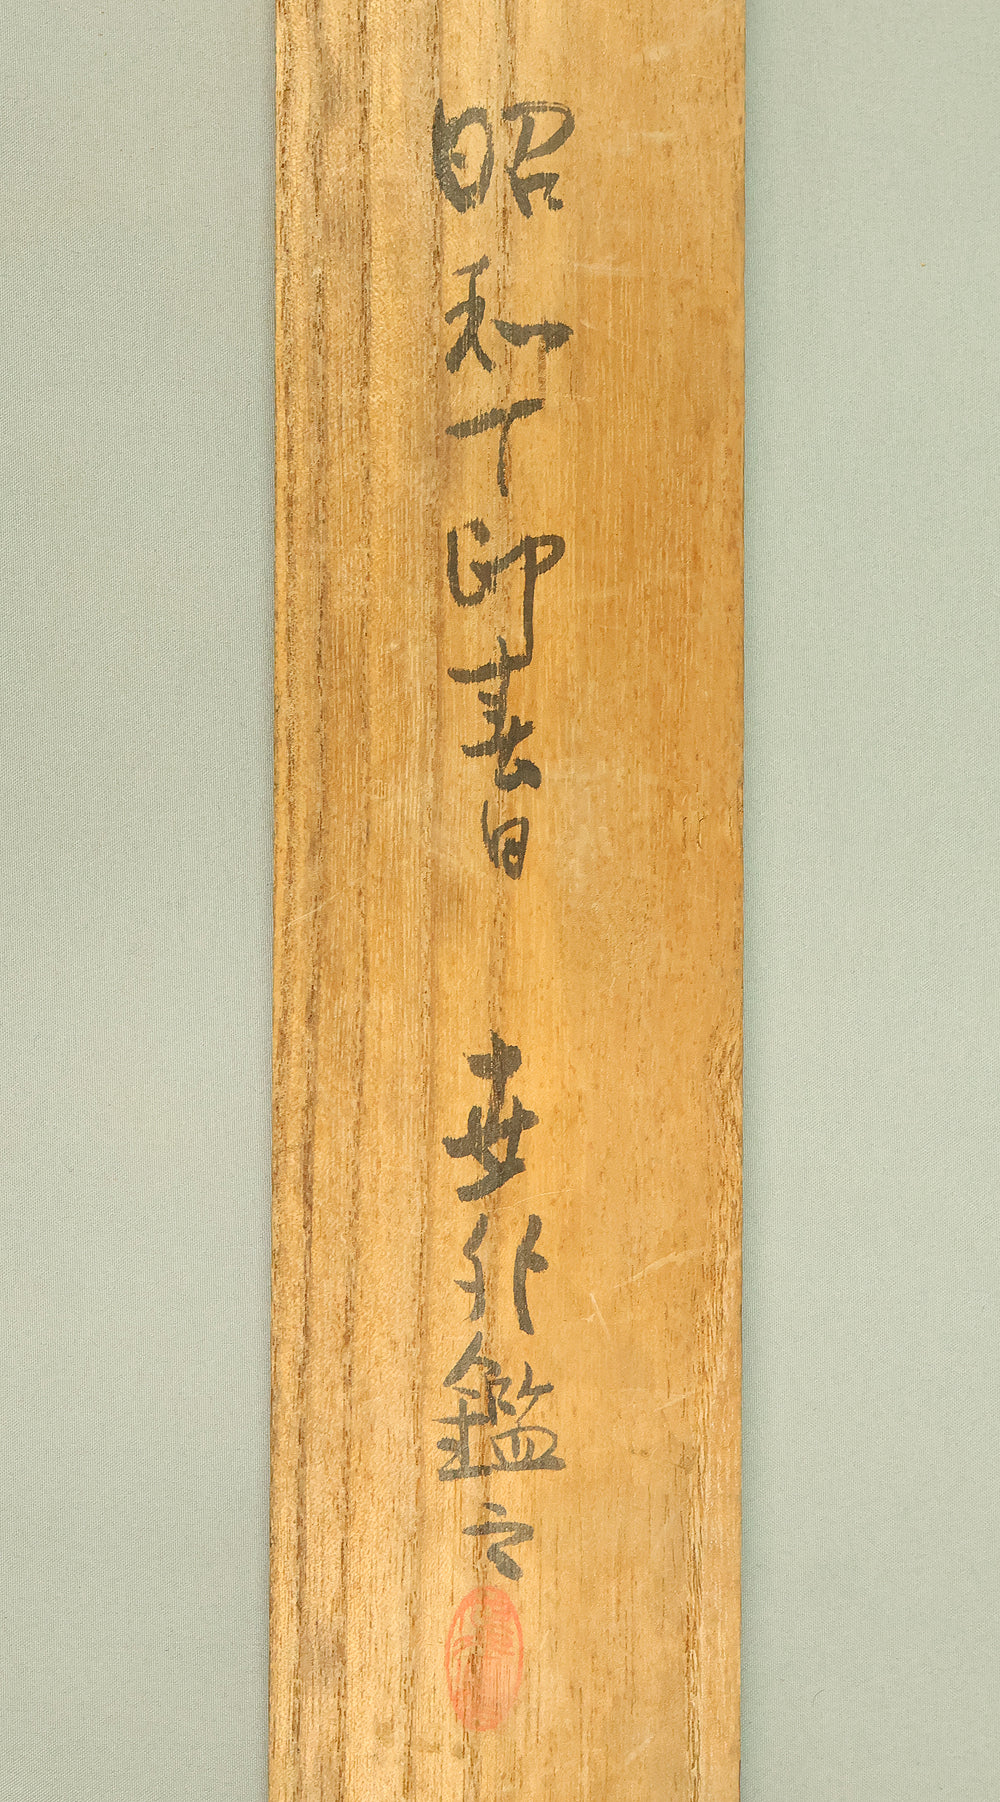 昭和丁卯春日 外鑑之